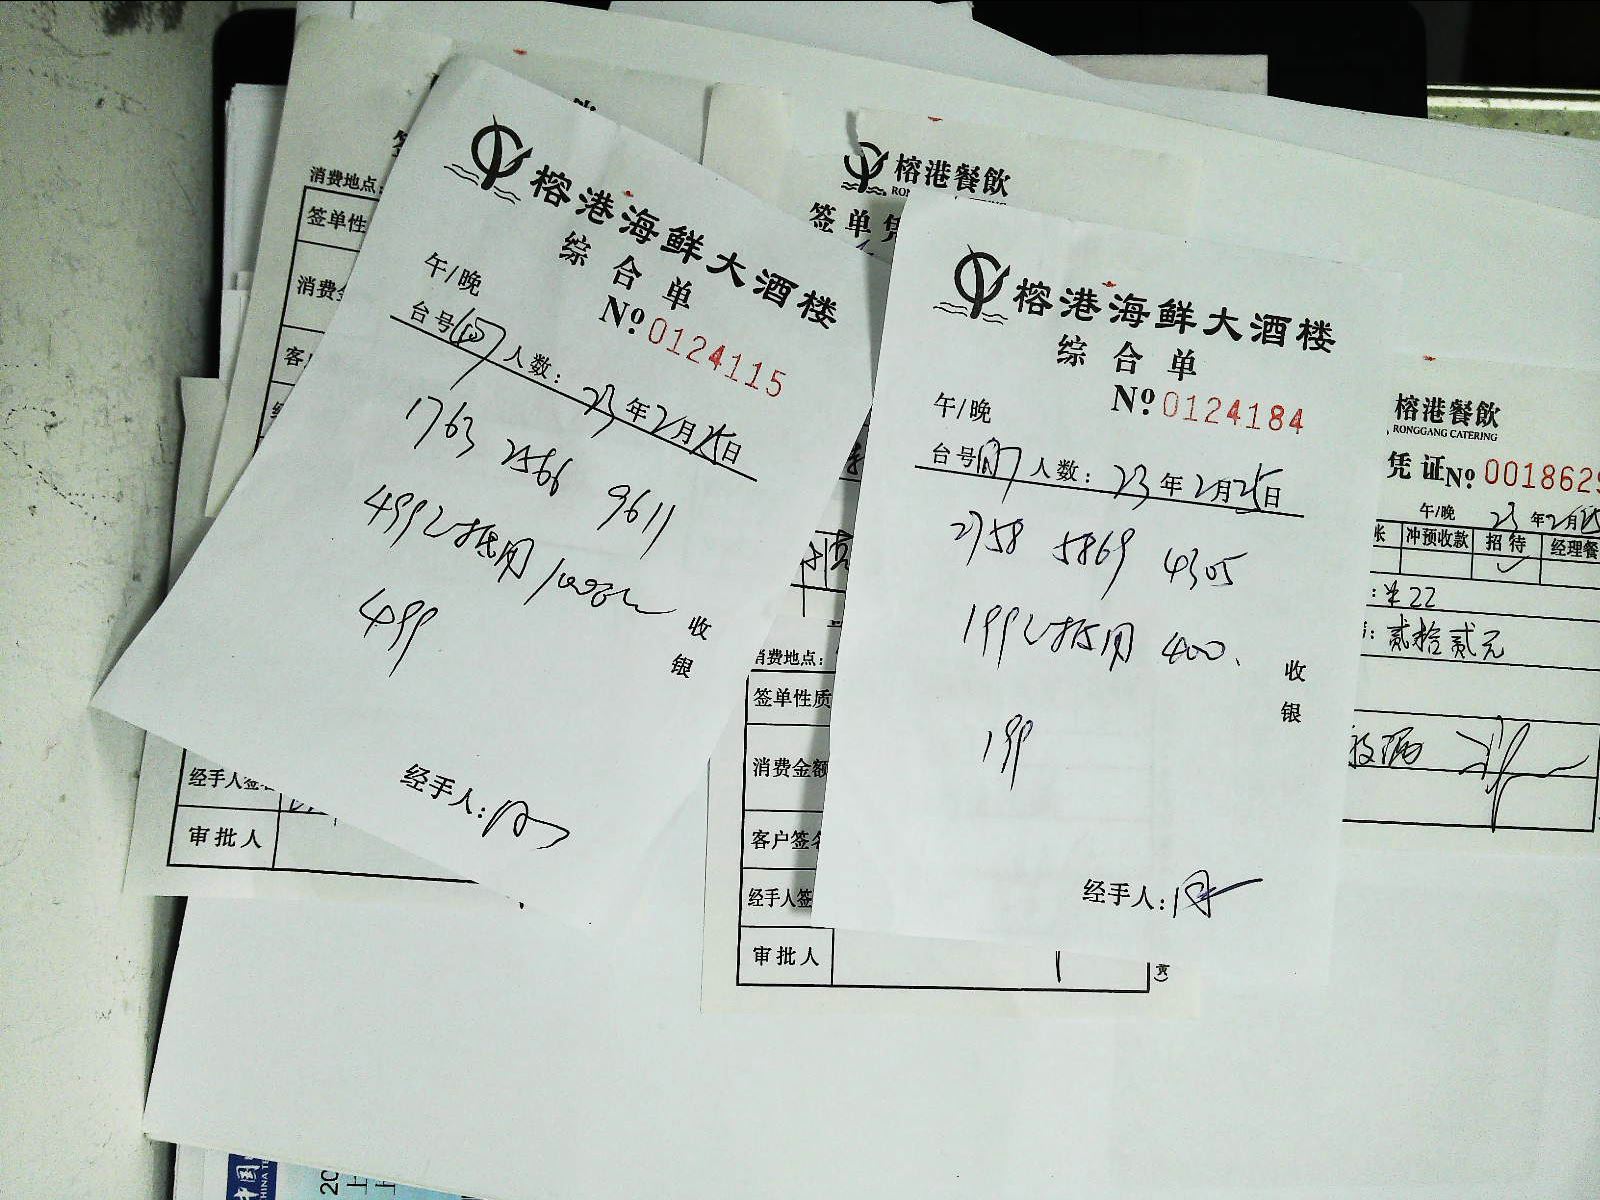 榕港海鲜大酒楼
综合单
午/晚
No 0124115
台号 人数: 23年2月25日
1763 2566 9611
499 抵用 1000
499
收银
经手人:
榕港海鲜大酒楼
综合单
午/晚
No 0124184
台号 人数: 23年2月25日
2758 5869 4305
199 抵用 400
199
收银
经手人:
消费地点:
签单性
消费金
客户
经手人签名
审批人
榕港餐飲
签单凭
消费地点:
签单性质
消费金额
客户签名
经手人签
审批人
榕港餐飲
RONGGANG CATERING
凭证No 0018629
午/晚 23年2月25
帐 冲预收款 招待 经理餐
¥22
贰拾贰元
中国